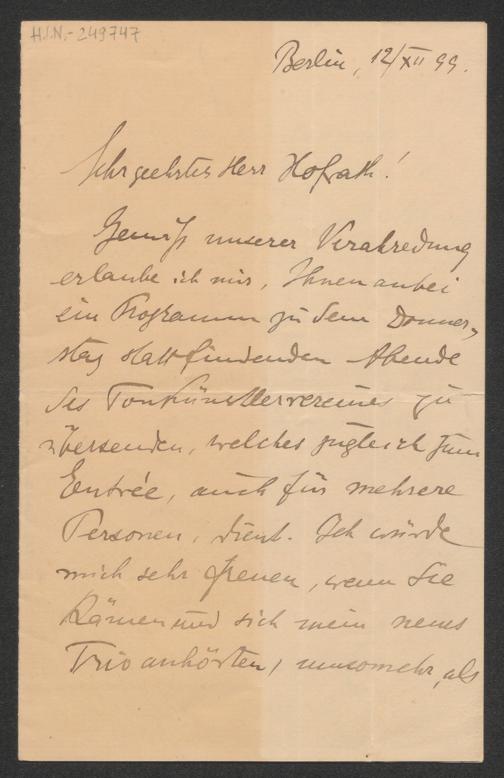 H.I.N.-249747
Berlin, 12/XII 99.
Sehr geehrter Herr Hofrath!
Gemäß unserer Verabredung
erlaube ich mir, Ihnen anbei
ein Programm zu dem Donners-
tag stattfindenden Abende
des Tonkünstlervereines zu
übersenden, welches zugleich zum
Entrée, auch für mehrere
Personen, dient. Ich würde
mich sehr freuen, wenn Sie
kämen und sich mein neues
Trio anhörten, umsomehr, als